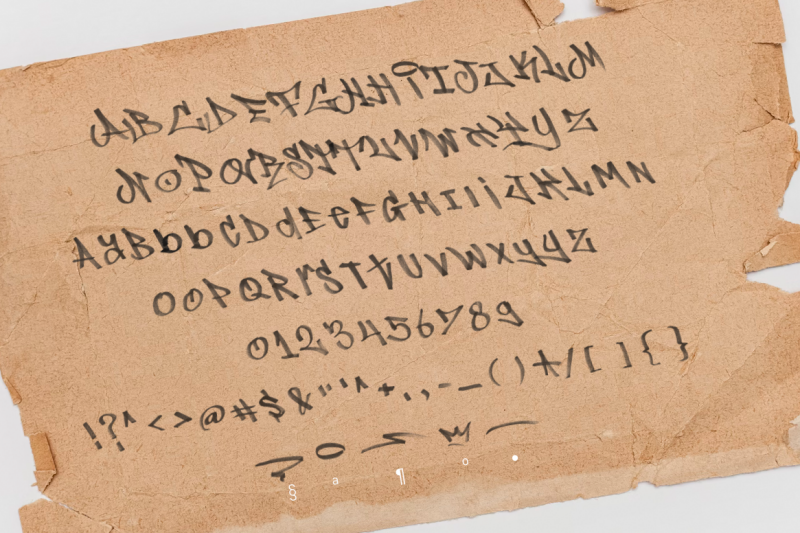 ABCDEFGHHiIJJKLM
NOPQRSTTUVWXYYZ
AaBbbCDdEeFGHIIiJKLMN
OOPQRrSTtUVWXyyZ
0123456789
!?^<>@#$&"''^+.,-_()*/[]{}
§ a ¶ o •